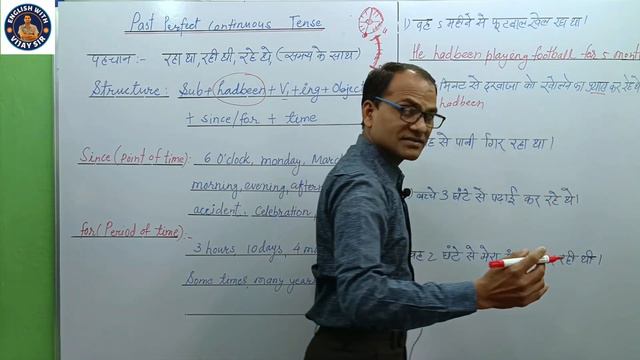 ENGLISH WITH
VIJAY SIR
Past Perfect Continuous Tense
पहचान:- रहा था, रही थी, रहे थे, (समय के साथ)
Structure: Sub + hadbeen + V₁ + ing + Object
+ since/for + time
Since (Point of time): 6 O'clock, monday, Marc
morning, evening, after
accident, Celebration,
for (Period of time):-
3 hours, 10 days, 4 m
Some times, many year
1) वह 5 महीने से फूटबाल खेल रहा था।
He hadbeen playing football for 5 mont
मिनट से दरवाजा को खोलने का प्रयास कर रहे थे
hadbeen
से पानी गिर रहा था।
बच्चे 3 घंटे से पढ़ाई कर रहे थे।
वह 2 घंटे से मेरा रही थी।